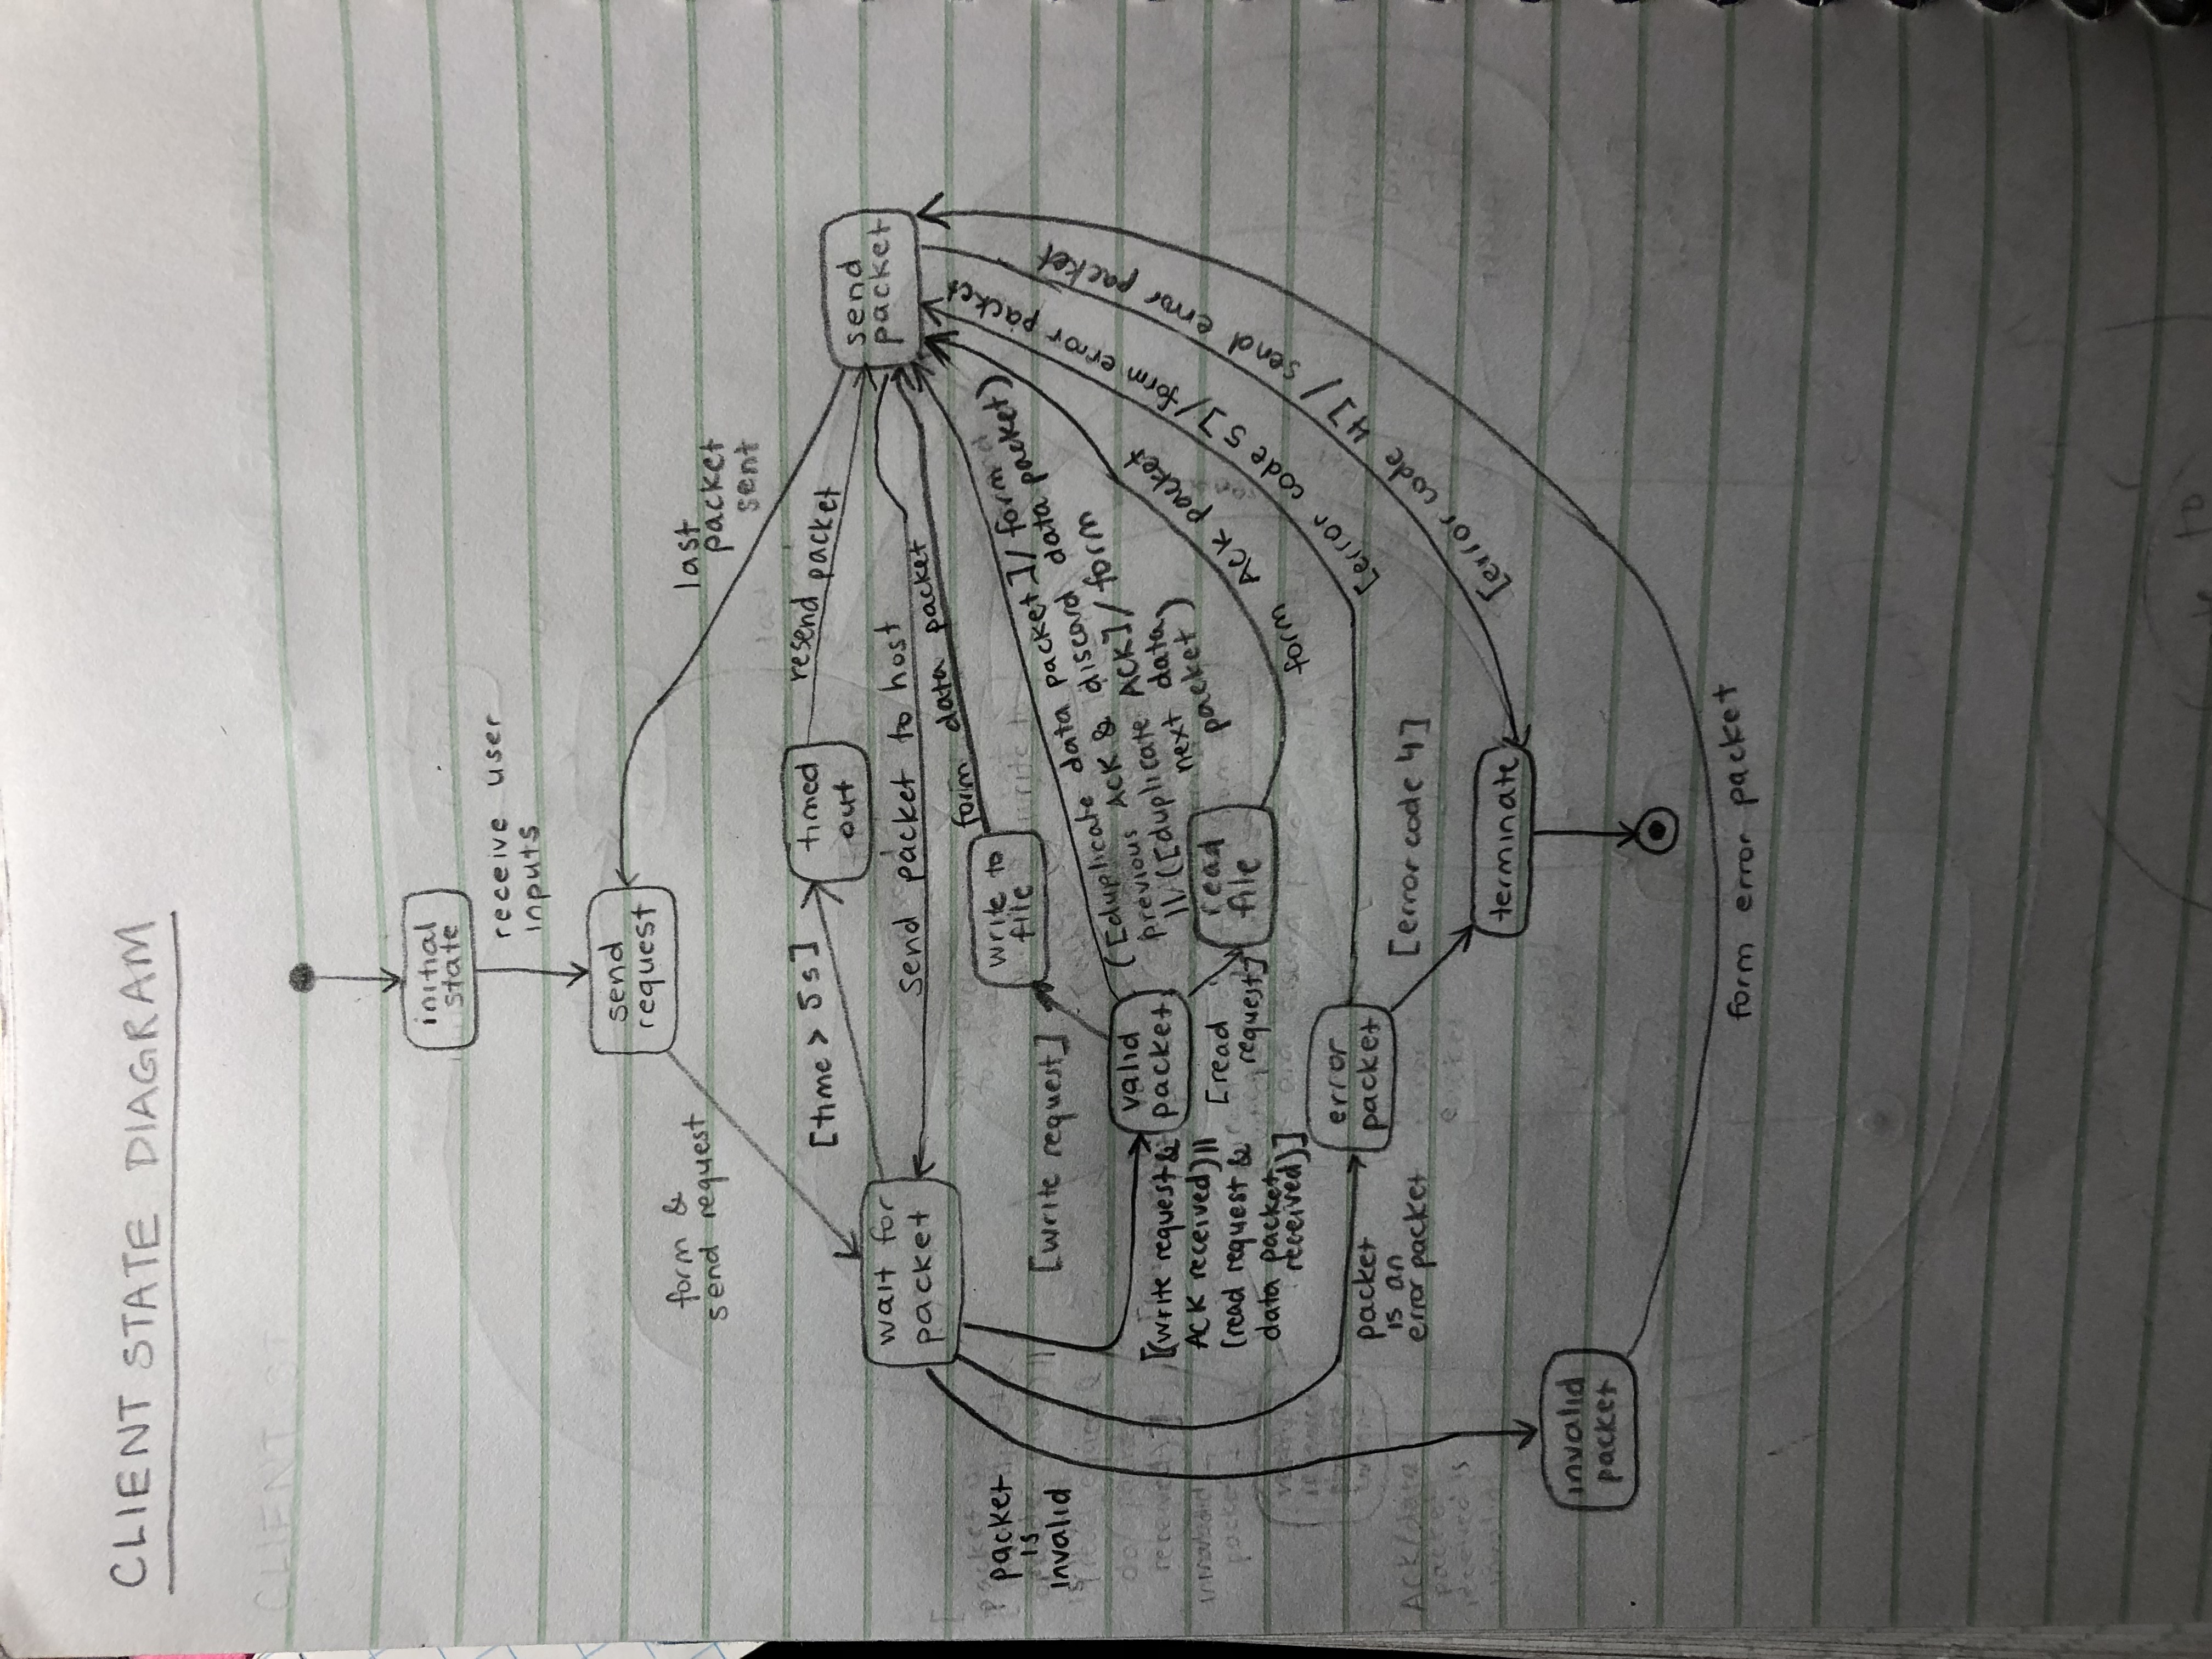 CLIENT STATE DIAGRAM
CLIENT ST
initial
state
receive user
inputs
send
request
form &
send request
last
packet
sent
[time > 5s]
timed
out
resend packet
send
packet
wait for
packet
send packet to host
form data packet
packet
is
invalid
write to
file
[write request]
([duplicate data packet]/form
previous ACK & discard data packet)
|| ([duplicate ACK]/form
next data
packet)
valid
packet
[(write request &
ACK received) ||
(read request &
data packet
received)]
[read
request]
read
file
form ACK packet
[error code 5]/form error packet
[error code 4]/send error packet
error
packet
packet
is an
error packet
[error code 4]
terminate
invalid
packet
form error packet